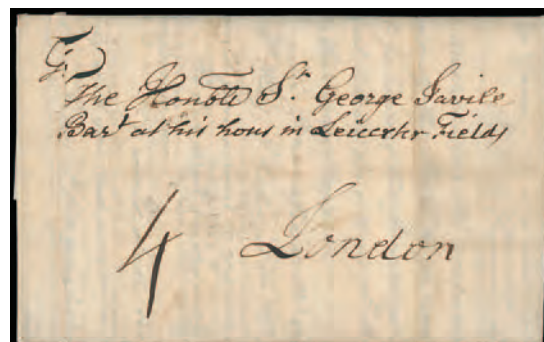 To
The Honble Sr. George Savile
Bart at his hous in Leicester Fields
4 London